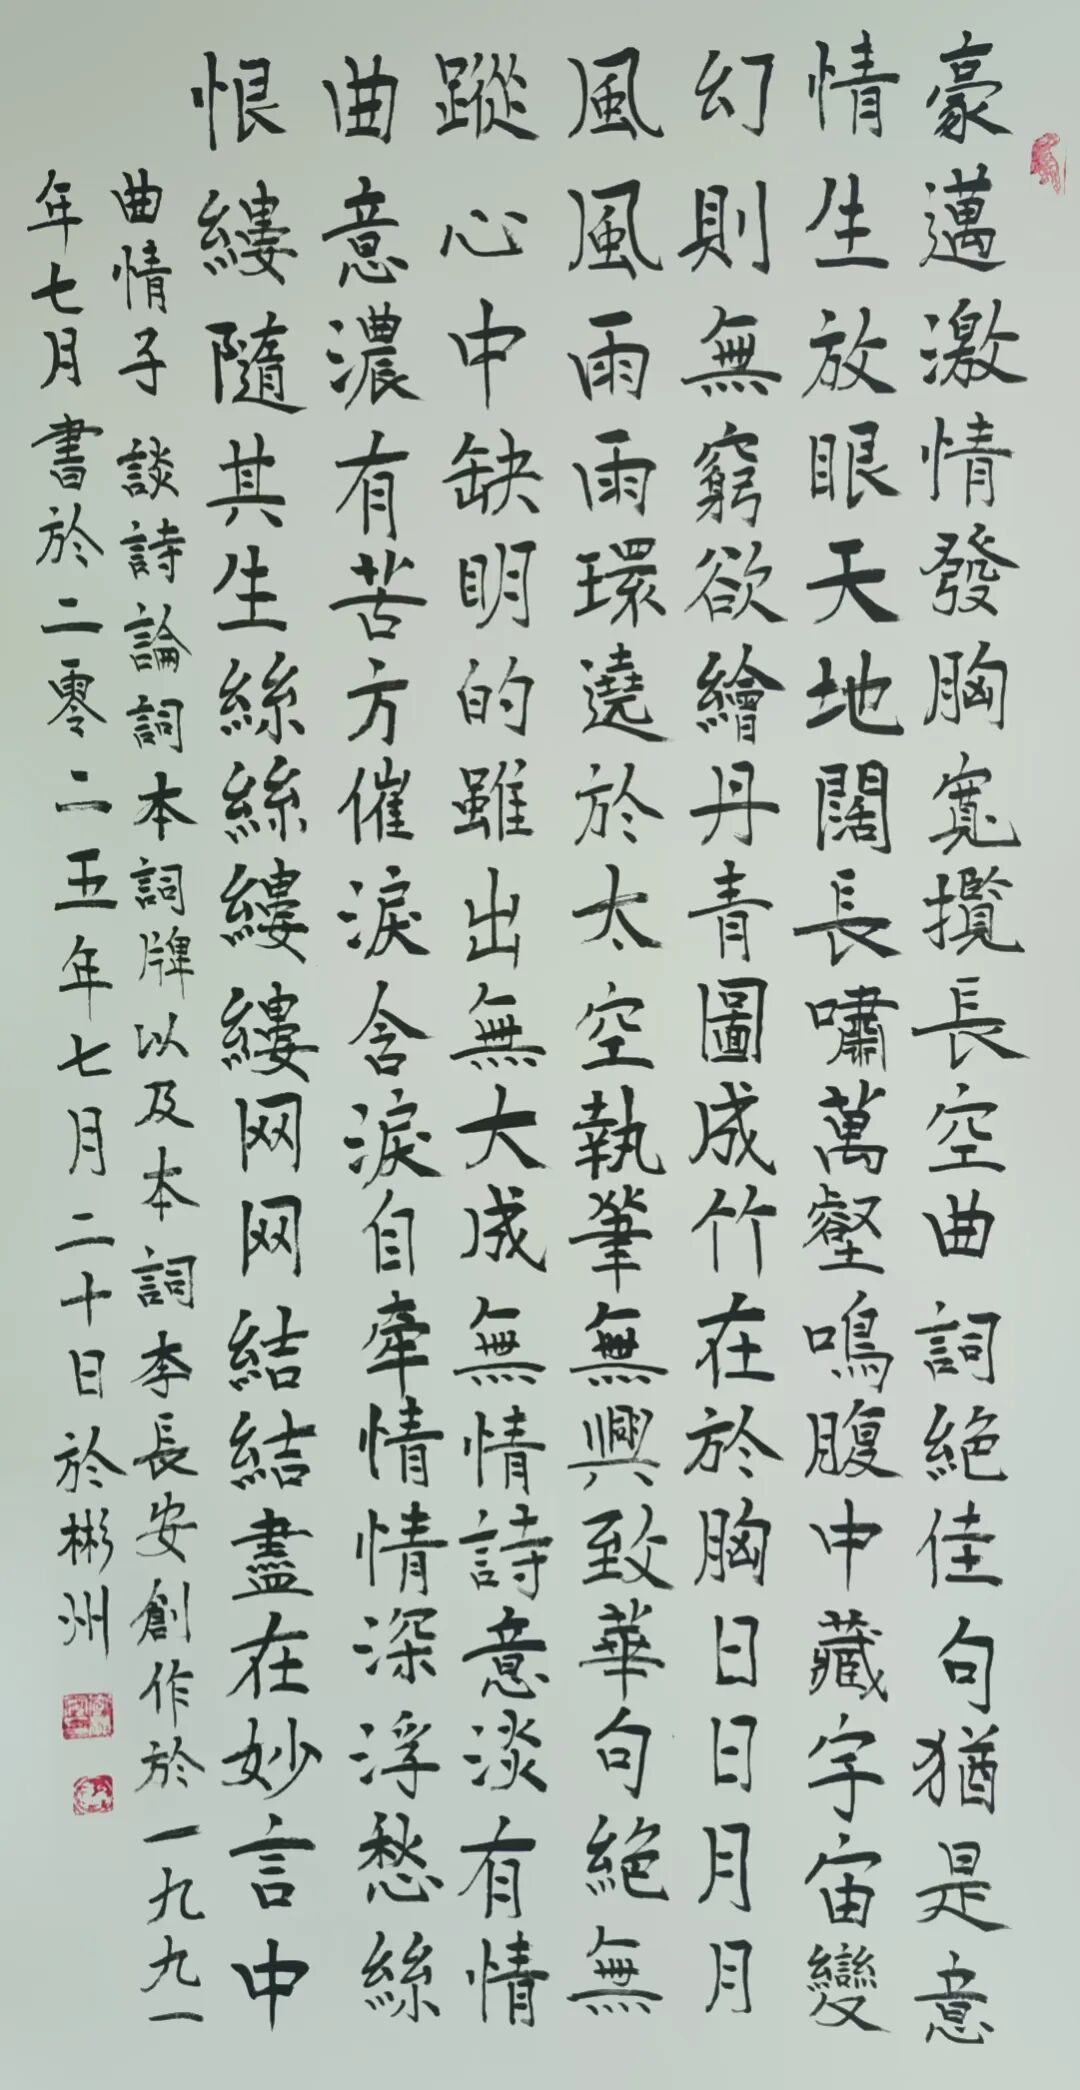 豪邁激情發胸寬攬長空曲詞絕佳句猶是意
情生放眼天地闊長嘯萬壑鳴腹中藏字宙變
幻則無窮欲繪丹青圖成竹在於胸日日月月
風風雨雨環遶於太空執筆無興致華句絕無
蹤心中缺明的雖出無大成無情詩意淡有情
曲意濃有苦方催淚含淚自牽情情深浮愁絲
恨縷隨其生絲絲縷縷网网結結盡在妙言中
曲情子 談詩論詞本詞牌以及本詞李長安創作於一九九一
年七月書於二零二五年七月二十日於彬州